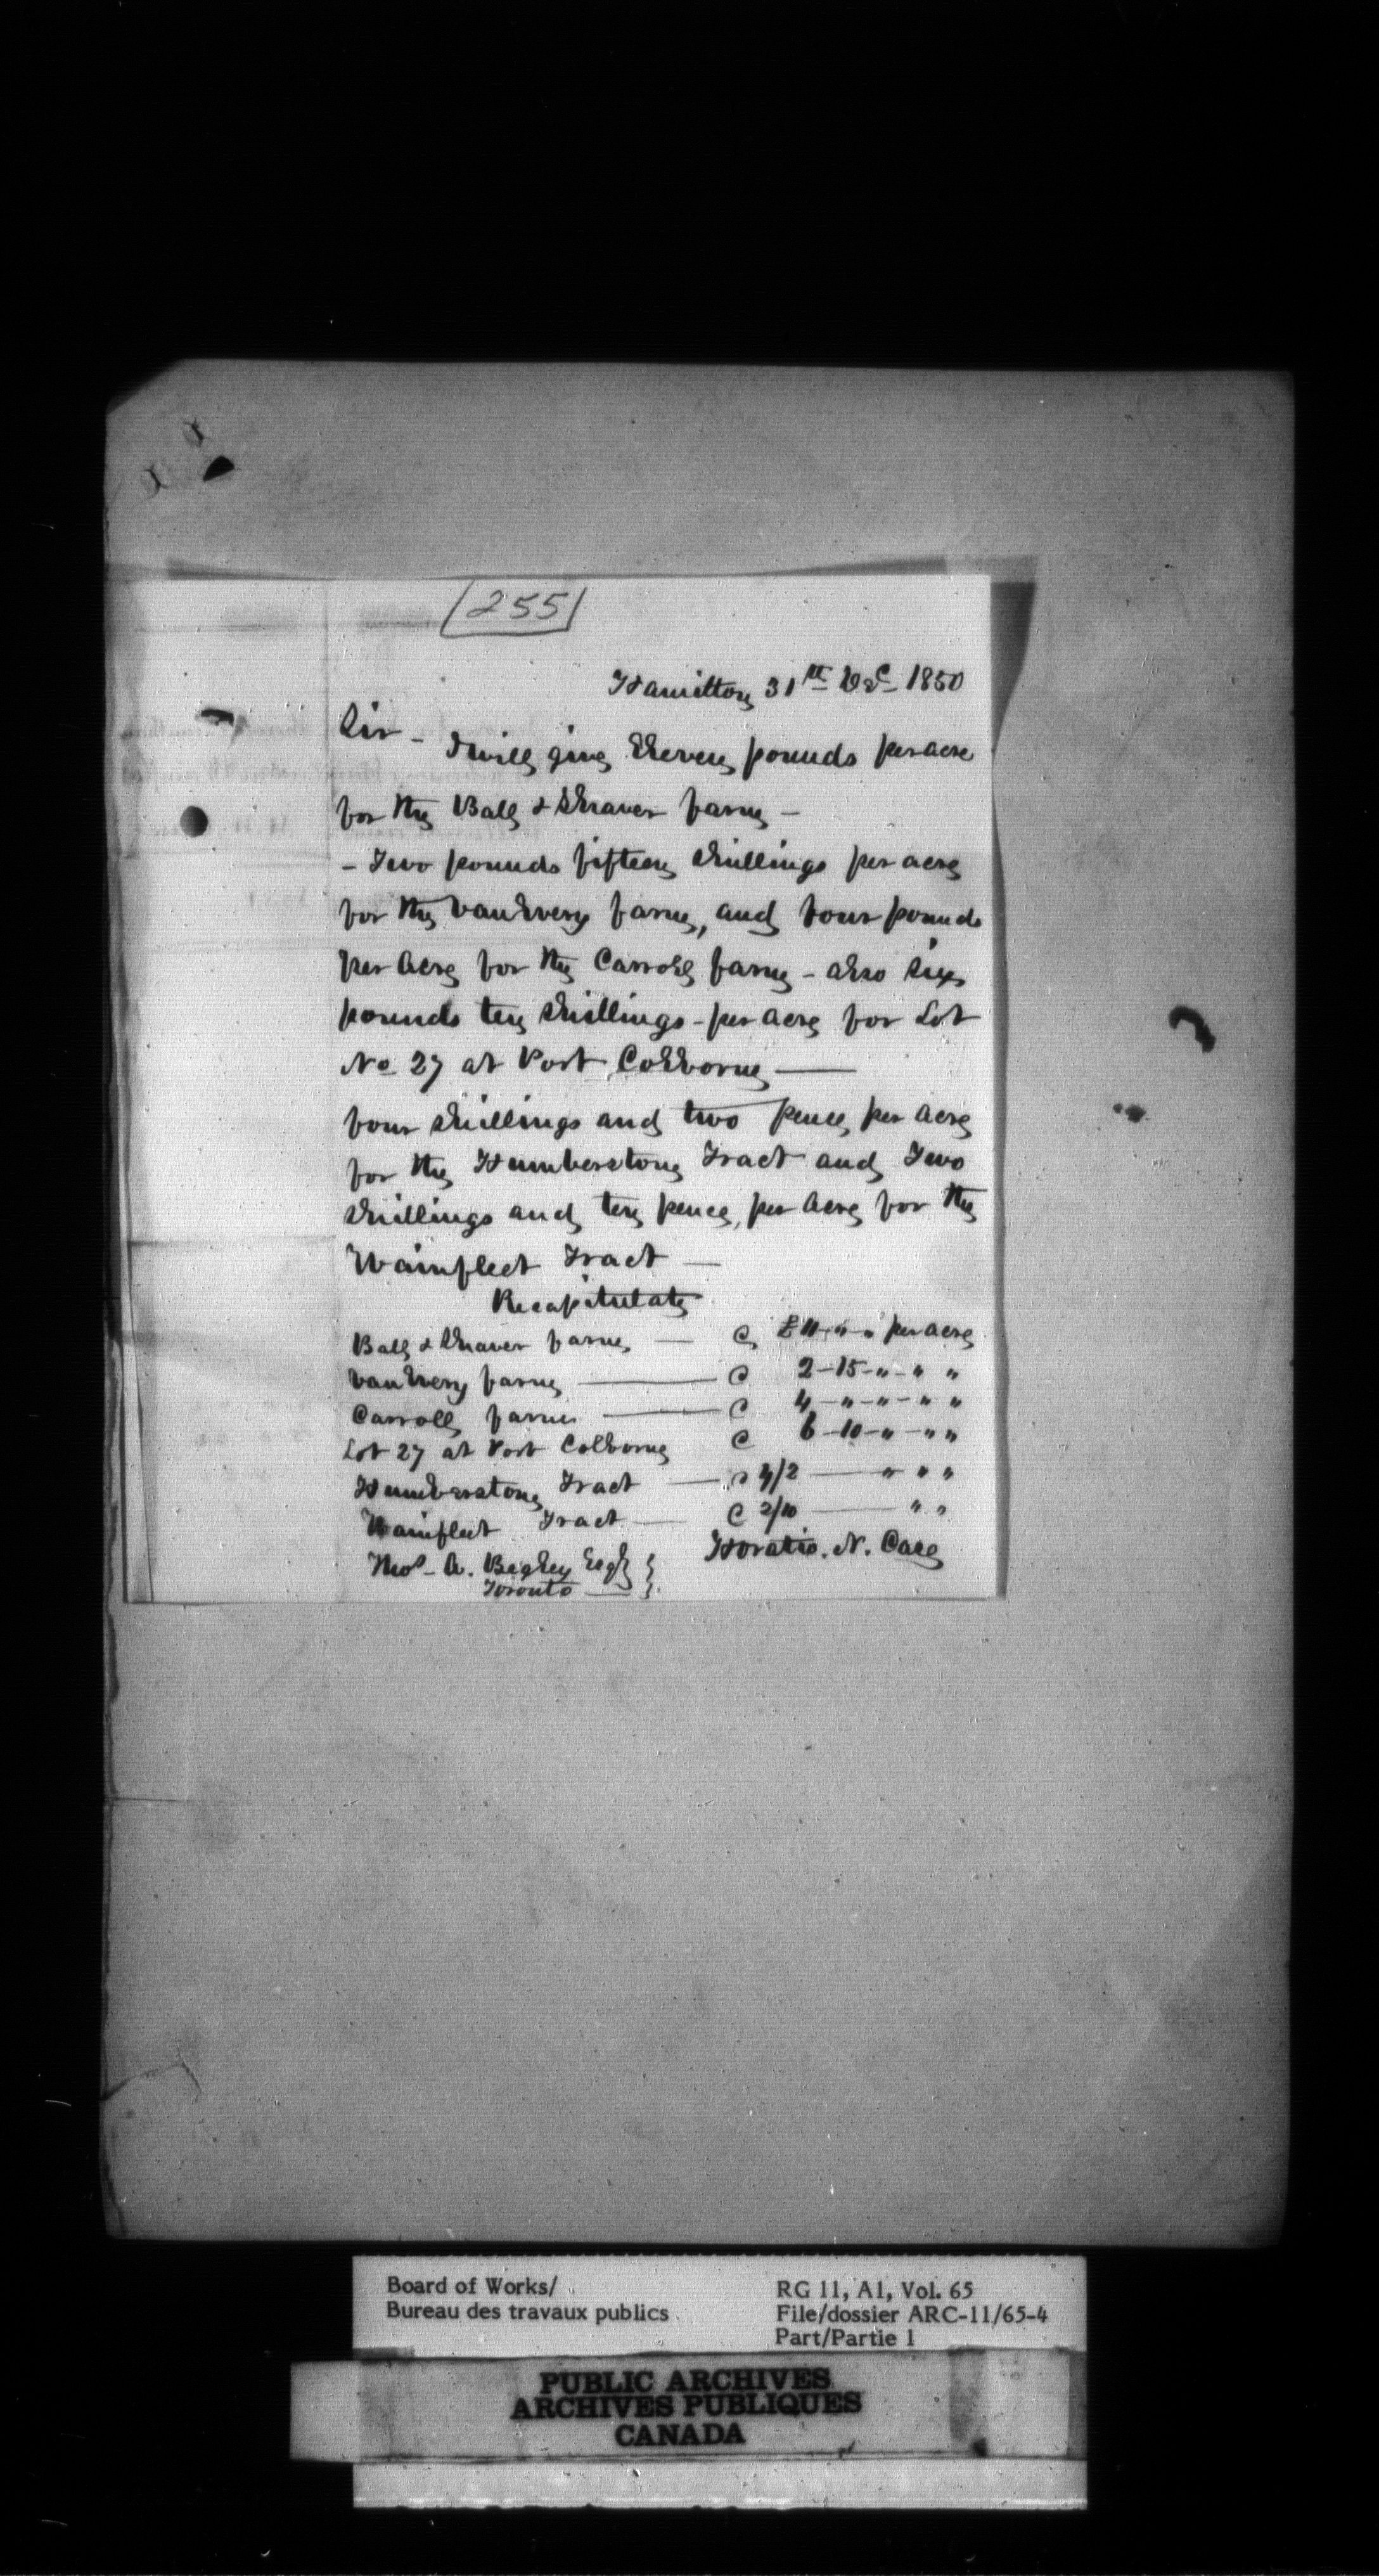 255
Hamilton 31st Dec 1850
Sir -
I will give Eleven pounds per acre
for the Ball & Shaver farm -
- Two pounds fifteen shillings per acre
for the VanEvery farm, and four pounds
per acre for the Carroll farm - also Six
pounds ten shillings - per acre for Lot
No 27 at Port Colborne
four shillings and two pence, per acre
for the Humberstone Tract and Two
shillings and ten pence, per acre for the
Wainfleet Tract -
Recapitulate
Ball & Shaver farm - @ £11 - " - " per acre
VanEvery farm - @ 2-15-"-" "
Carroll farm - @ 4-"-"-" "
Lot 27 at Port Colborne @ 6-10-"-" "
Humberstone Tract - @ 4/2 - " " "
Wainfleet Tract - @ 2/10 - " "
Horatio. N. Case
Thos - A. Begley Esqr
Toronto
Board of Works/
Bureau des travaux publics
RG 11, A1, Vol. 65
File/dossier ARC-11/65-4
Part/Partie 1
PUBLIC ARCHIVES
ARCHIVES PUBLIQUES
CANADA